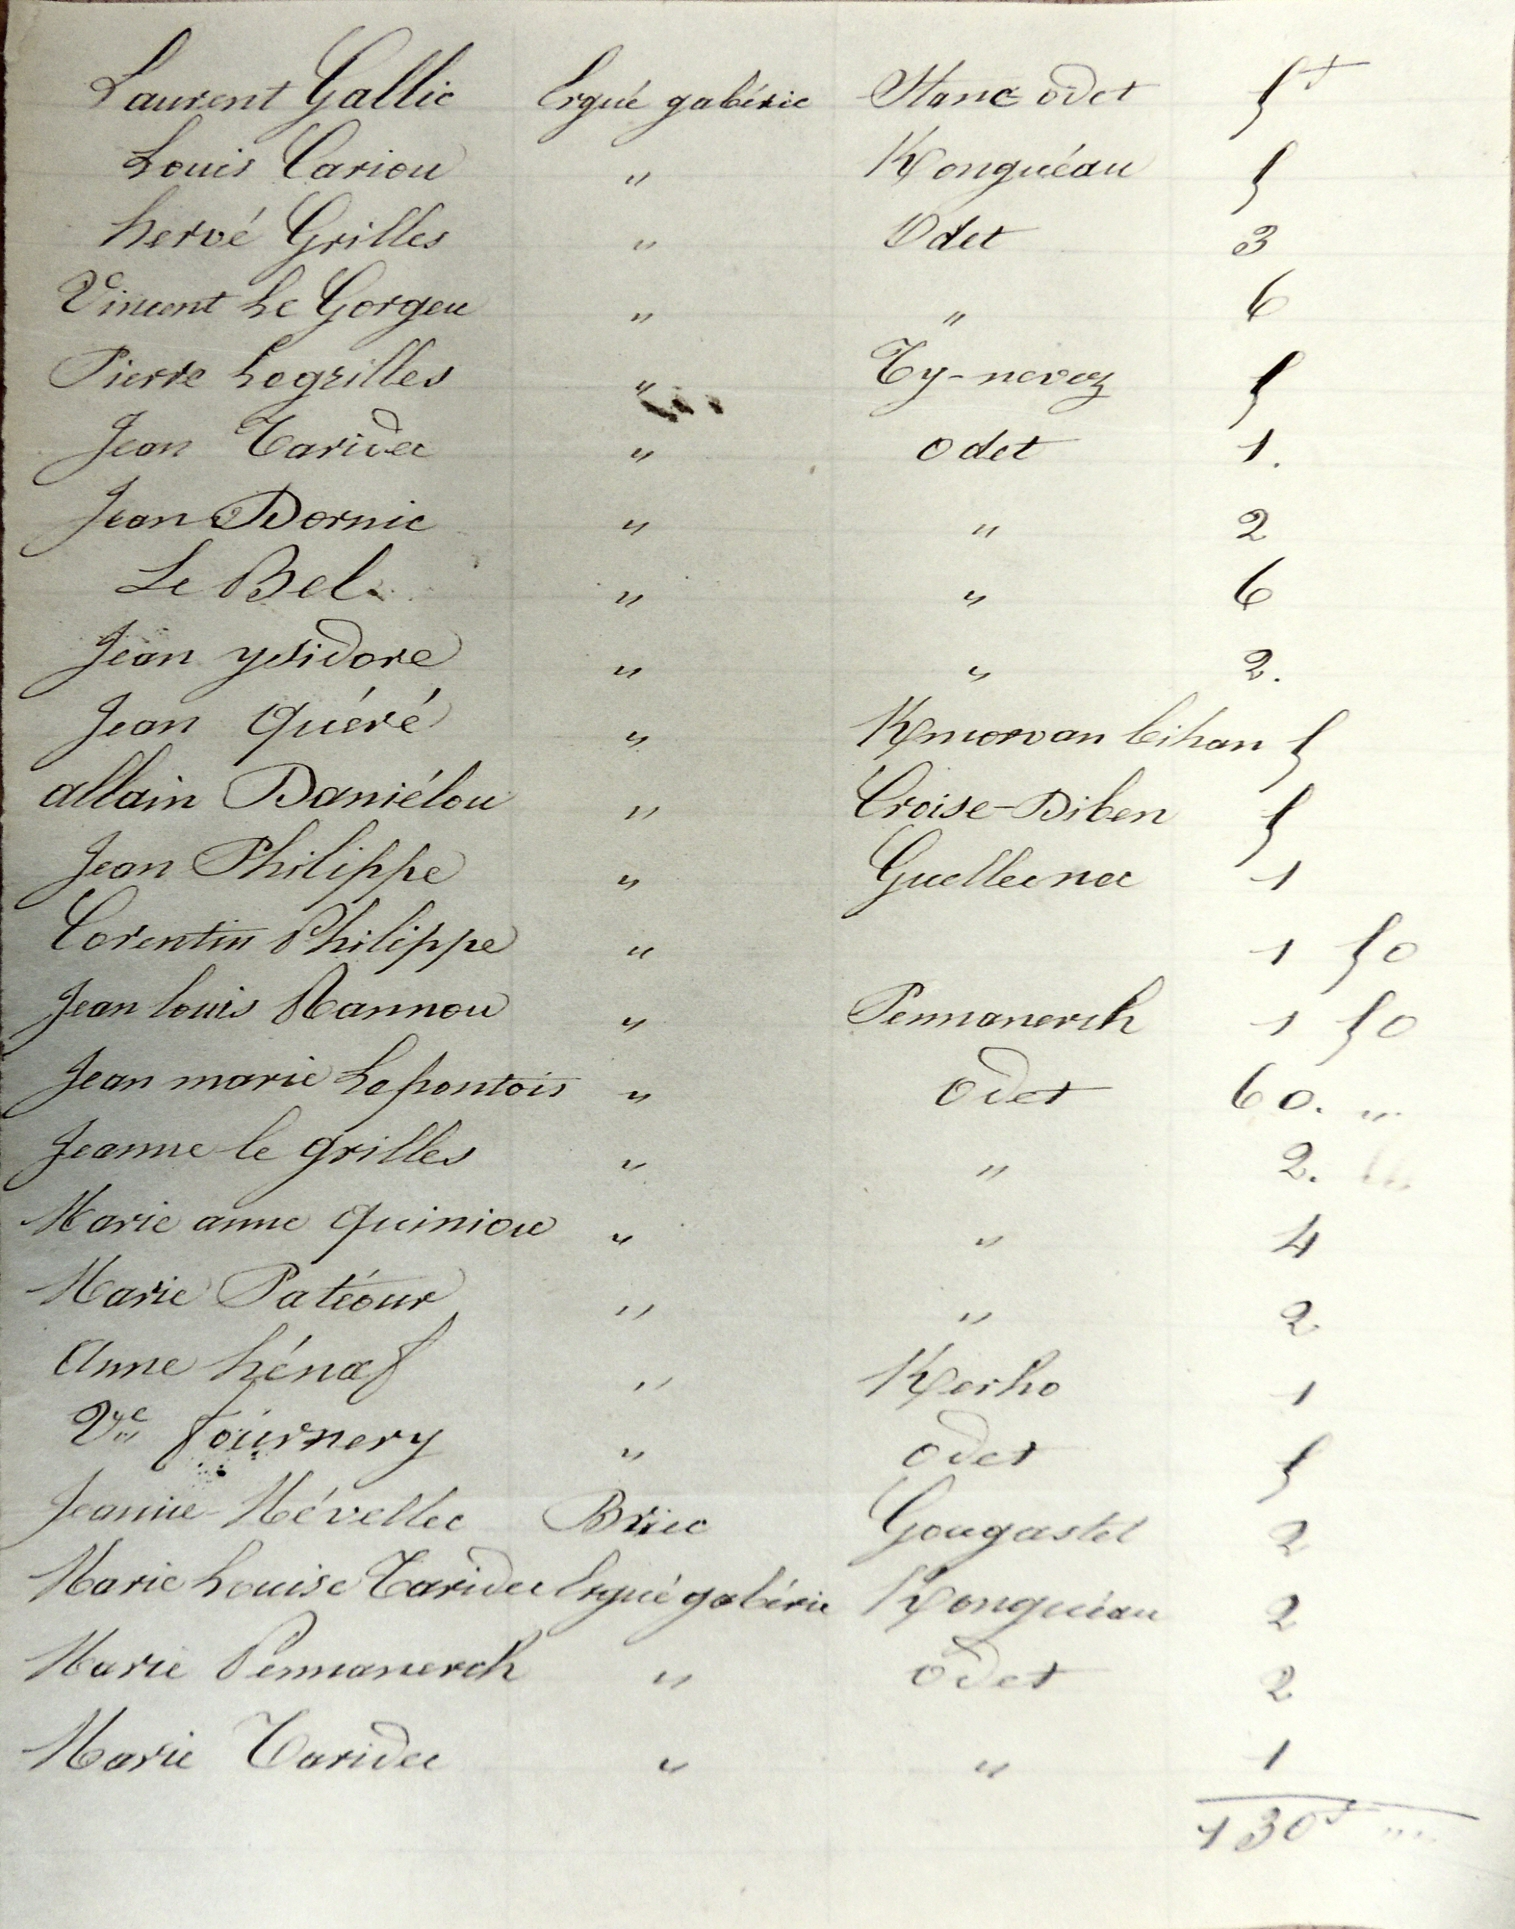 Laurent Gallic Ergué gabéric Stanc odet 5f
Louis Cariou " Konguéau 5
hervé Grilles " Odet 3
Vincent Le Gorgeu " " 6
Pierre Legrilles " Ty-nevez 5
Jean Taridec " odet 1.
Jean Dornic " " 2
Le Bel " " 6
Jean ysidore " " 2.
Jean Quéré " Kmorvan bihan 5
allain Daniélou " Croise-Diben 5
Jean Philippe " Guellecnec 1
Corentin Philippe " 1 50
Jean louis Rannou " Pennanerch 1 50
Jean marie Lepontois " Odet 60. "
Jeanne le grilles " " 2.
Marie anne Quiniou " " 4
Marie Patéour " " 2
Anne hénaf " Kerho 1
Vve fournery " odet 5
Jeanne Névellec Briec Gougastel 2
Marie Louise Taridec Ergué gabéric Konguéau 2
Marie Pennanerch " odet 2
Marie Taridec " " 1
130f "